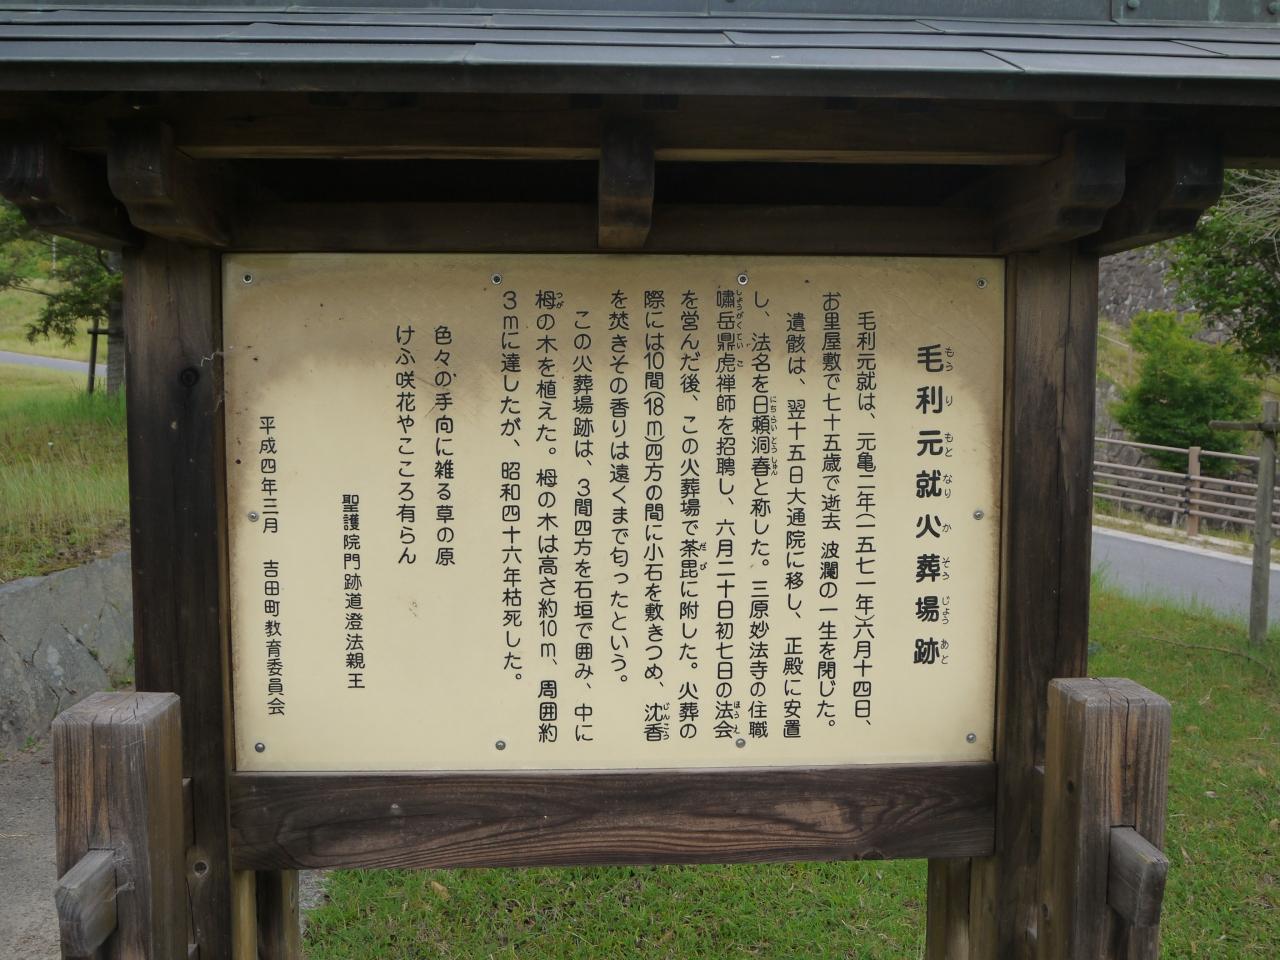 毛利元就火葬場跡
もうりもとなりかそうじょうあと
毛利元就は、元亀二年(一五七一年)六月十四日、
お里屋敷で七十五歳で逝去 波瀾の一生を閉じた。
遺骸は、翌十五日大通院に移し、正殿に安置
し、法名を日頼洞春と称した。三原妙法寺の住職
にちらいどうしゅん
嘯岳鼎虎禅師を招聘し、六月二十日初七日の法会
しょうがくていこ
ほうえ
を営んだ後、この火葬場で荼毘に附した。火葬の
だび
際には10間(18m)四方の間に小石を敷きつめ、沈香
じんこう
を焚きその香りは遠くまで匂ったという。
この火葬場跡は、3間四方を石垣で囲み、中に
栂の木を植えた。栂の木は高さ約10m、周囲約
つが
3mに達したが、昭和四十六年枯死した。
色々の手向に雑る草の原
けふ咲花やこころ有らん
聖護院門跡道澄法親王
平成四年三月 吉田町教育委員会